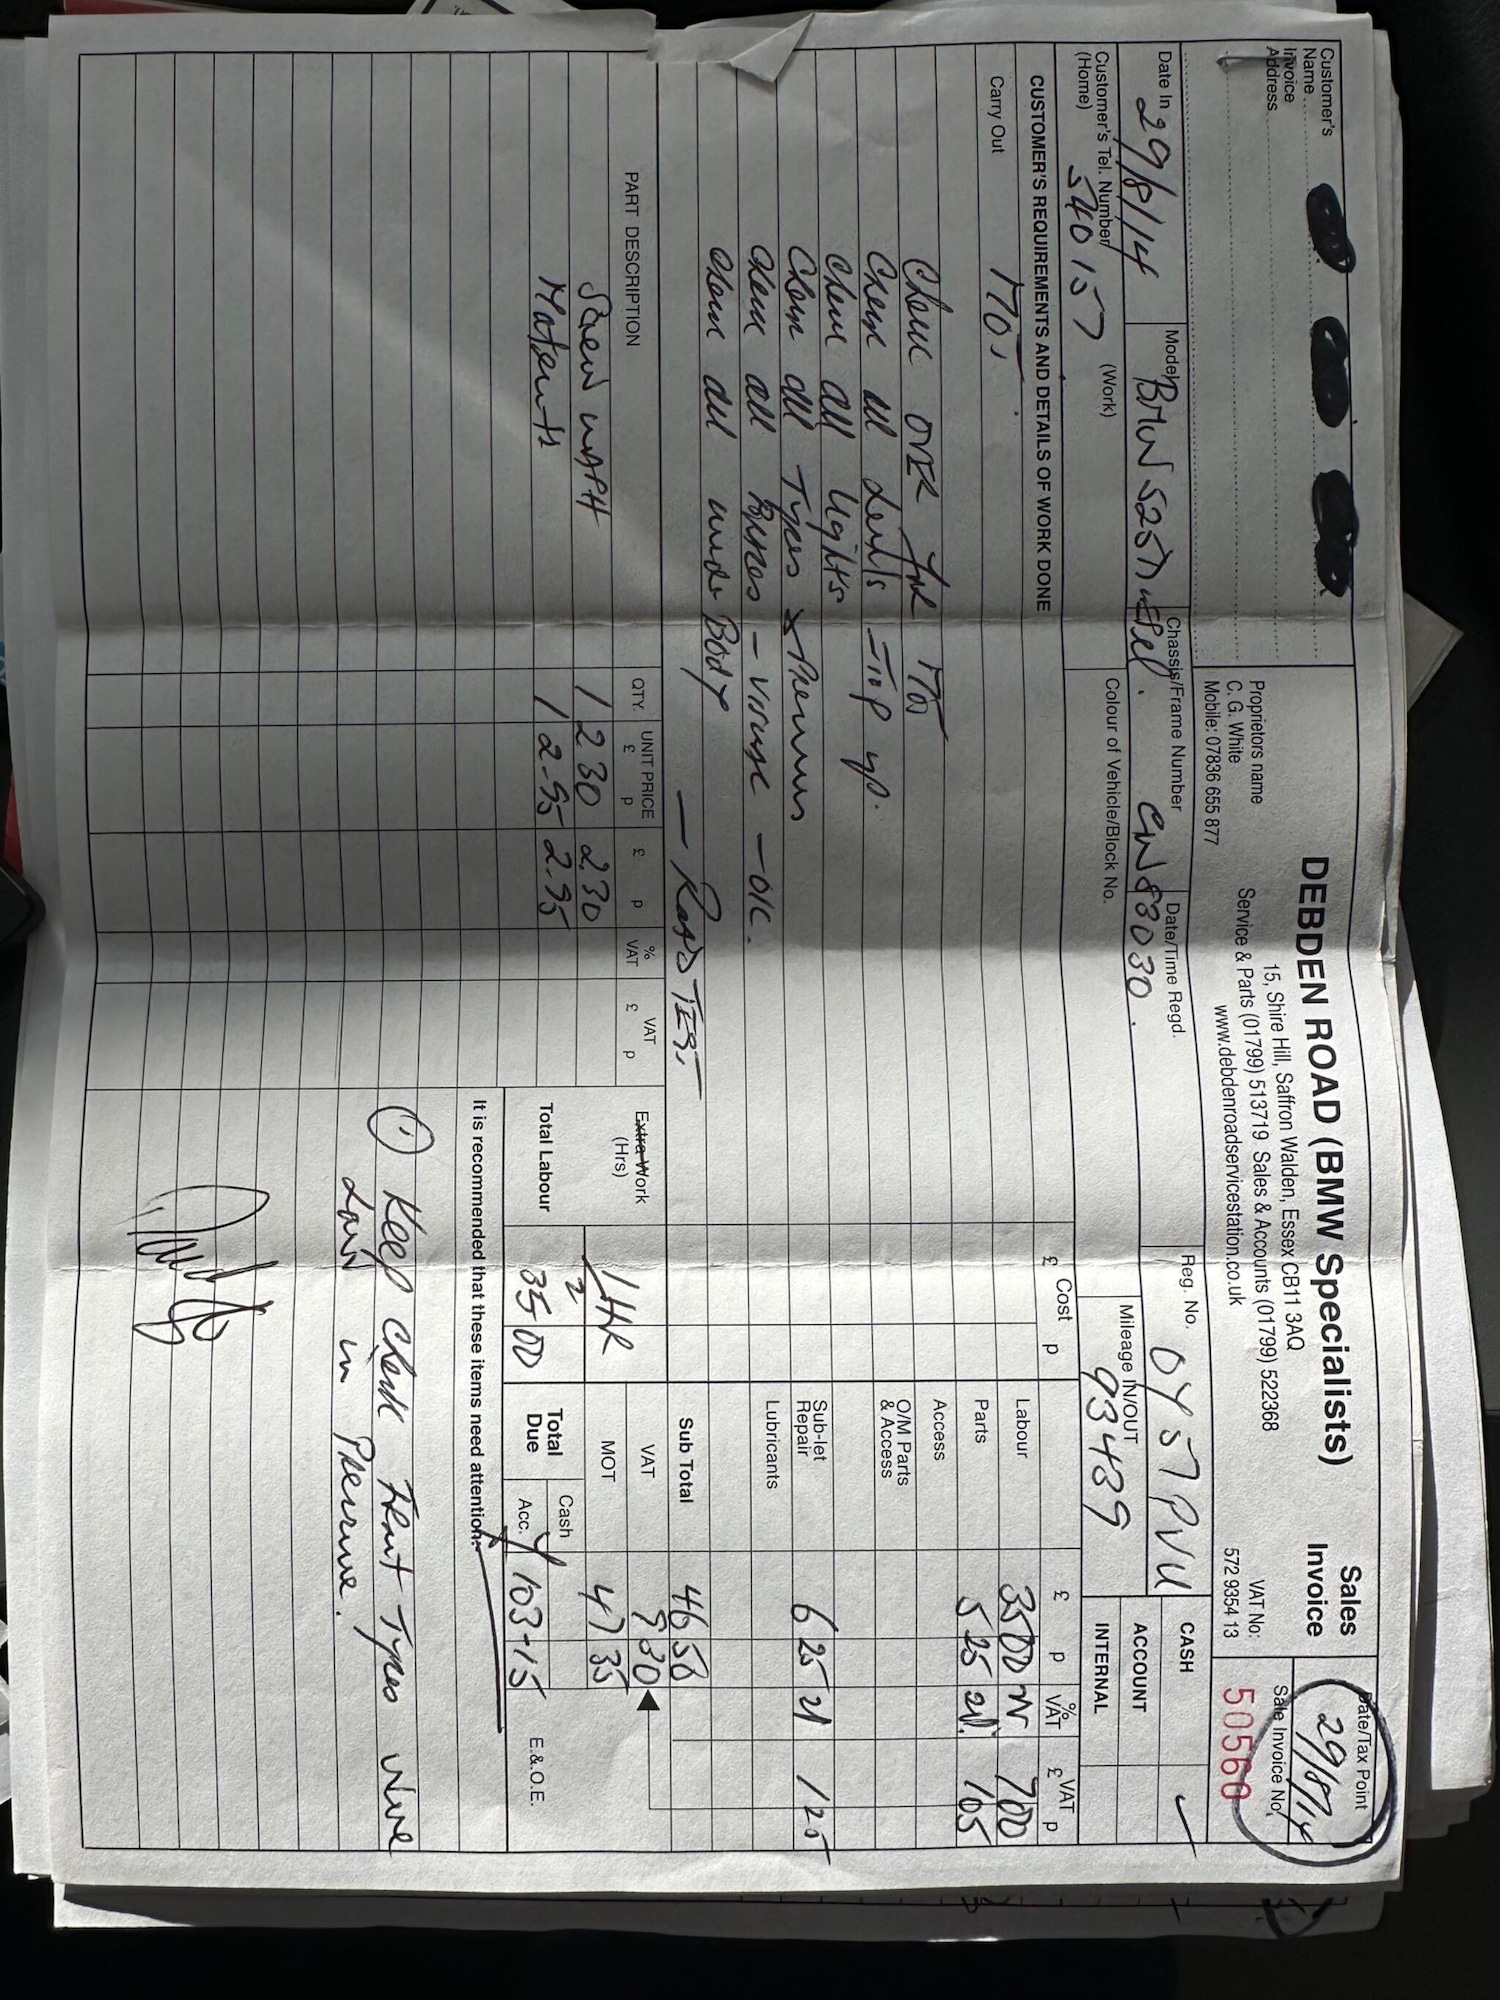 DEBDEN ROAD (BMW Specialists)
15, Shire Hill, Saffron Walden, Essex CB11 3AQ
Service & Parts (01799) 513719 Sales & Accounts (01799) 522368
www.debdenroadservicestation.co.uk
Proprietors name
C. G. White
Mobile: 07836 655 877
Sales
Invoice
VAT No:
572 9354 13
Date/Tax Point
29/8/14
Sale Invoice No.
50560
Customer's
Name
Invoice
Address
Date In 29/8/14
Model BMW 525 Diesel.
Chassis/Frame Number CW83030.
Date/Time Regd.
Reg. No. OY57PVU
Customer's Tel. Number
(Home) 540157
(Work)
Colour of Vehicle/Block No.
Mileage IN/OUT
93489
CASH ✓
ACCOUNT
INTERNAL
CUSTOMER'S REQUIREMENTS AND DETAILS OF WORK DONE
£ Cost p
£ p
% VAT
£ VAT p
Carry Out MOT
Check OVER for MOT
Check all levels - Top up.
Check all Lights
Check all Tyres &
Check all - OK.
Check all under Body
- ROAD TEST
Labour 35 00 7 00
Parts 5 25 1 05
Access
O/M Parts
& Access
Sub-let
Repair 6 25 1 25
Lubricants
Sub Total 46 50
VAT 9 30
MOT 47 35
Total
Due
Cash
Acc.
103-15
E.&O.E.
PART DESCRIPTION
QTY.
UNIT PRICE
£ p
£ p
% VAT
VAT
£ p
SCREEN WASH 1 2 30 2.30
Materials 1 2-95 2-95
Extra Work
(Hrs)
1/2 HR
Total Labour 35 00
It is recommended that these items need attention:
① Keep check Front Tyres